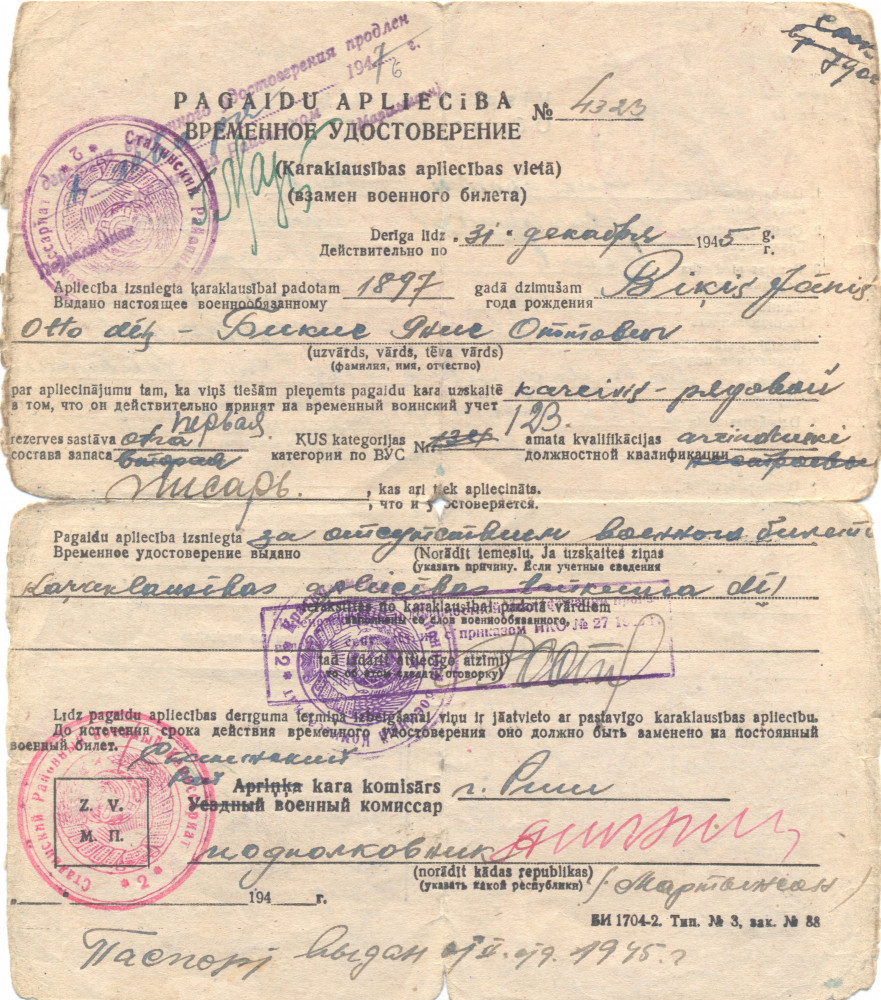 достоверения продлен
1947 г.
PAGAIDU APLIECĪBA
ВРЕМЕННОЕ УДОСТОВЕРЕНИЕ
№ 4323
(Karaklausības apliecības vietā)
(взамен военного билета)
Derīga līdz
Действительно по
31 декабря 1945 g.
г.
Apliecība izsniegta karaklausībai padotam
Выдано настоящее военнообязанному
1897
gadā dzimušam
года рождения
Biķis Jānis
Otto dēls – Бикис Янис Оттович
(uzvārds, vārds, tēva vārds)
(фамилия, имя, отчество)
par apliecinājumu tam, ka viņš tiešām pieņemts pagaidu kara uzskaitē
в том, что он действительно принят на временный воинский учет
kareivis – рядовой
первая
rezerves sastāva otra
состава запаса вторая
ĶUS kategorijas
категории по ВУС
Nr. 134 123.
amata kvalifikācijas
должностной квалификации
писарь.
, kas arī tiek apliecināts.
, что и удостоверяется.
Pagaidu apliecība izsniegta
Временное удостоверение выдано
за отсутствием военного билета
(Norādīt iemeslu. Ja uzskaites ziņas
(указать причину. Если учетные сведения
karaklausības apliecības
ierakstītas no karaklausībai padotā vārdiem
заполнены со слов военнообязанного,
с приказом НКО № 27
tad izdarīt attiecīgo atzīmi)
то об этом сделать оговорку)
Līdz pagaidu apliecības derīguma termiņa izbeigšanai viņu ir jāatvieto ar pastāvīgo karaklausības apliecību.
До истечения срока действия временного удостоверения оно должно быть заменено на постоянный
военный билет.
Apriņķa kara komisārs
Уездный военный комиссар
г. Риги
Z. V.
М. П.
Сталинский Районный
2
подполковник
(norādīt kādas republikas)
(указать какой республики)
(Мартынсон)
194 г.
БИ 1704-2. Тип. № 3, зак. № 88
Паспорт выдан 1945 г